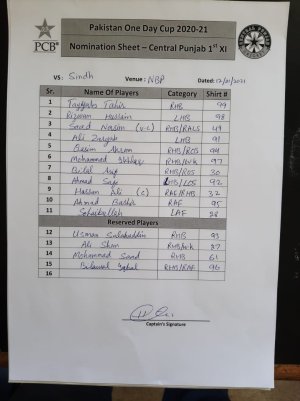 Pakistan One Day Cup 2020-21
PCB
Nomination Sheet – Central Punjab 1st XI
VS: Sindh Venue: NBP Dated: 12/01/2021
Sr. Name Of Players Category Shirt #
1 Tayyab Tahir RHB 99
2 Rizwan Hussain LHB 98
3 Saad Nasim (v.c) RHB/RALS 49
4 Ali Zaryab LHB 91
5 Qasim Akram RHB/ROS
6 Mohammad RHB/WK 97
7 Bilal Asif RHB/ROS 30
8 Ahmad Safi LHB/LOS 92
9 Hassan Ali (c) RAF/RHB 32
10 Ahmad Bashir RAF 95
11 LAF
Reserved Players
12 Usman Salahuddin RHB 93
13 Ali Shan RHB/WK 27
14 Mohammad Saad RHB 61
15 Bilawal Iqbal RHB/RAF 96
16
Captain's Signature